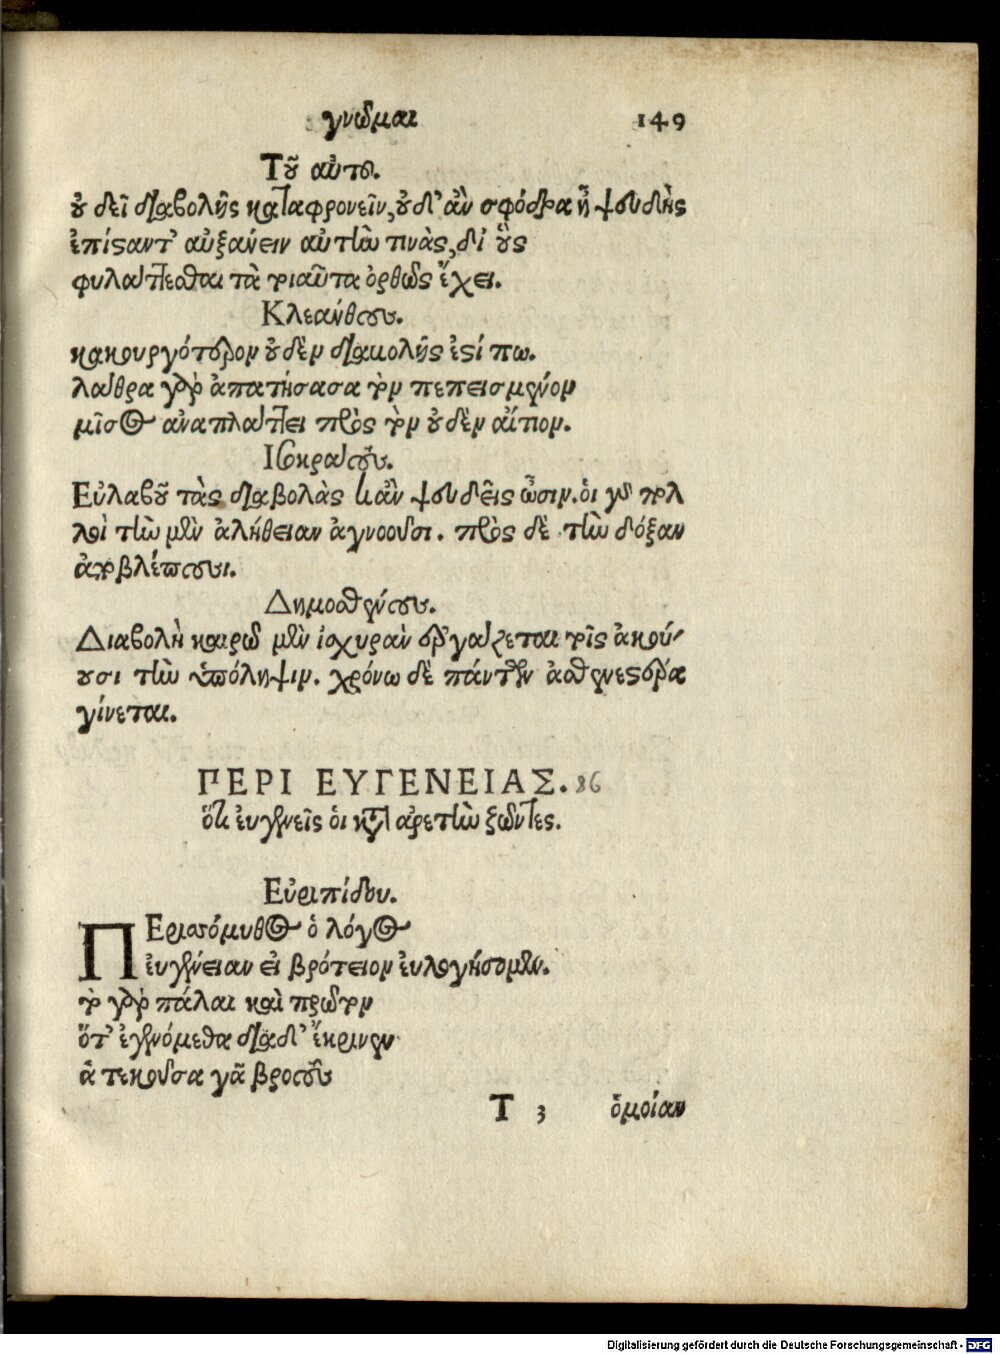 γνῶμαι 149
Τοῦ αὐτοῦ.
οὐ δεῖ διαβολῆς καταφρονεῖν, οὐδ' ἂν σφόδρα ᾖ ψευδὴς
ἐπίσαντ' αὐξάνειν αὐτὴν τινὰς, δι' οὓς
φυλάττεσθαι τὰ τοιαῦτα ὀρθῶς ἔχει.
Κλεάνθους.
κακουργότερον οὐδὲν διαμολῆς ἐστί πω.
λάθρα γὰρ ἀπατήσασα τὸν πεπεισμένον
μῖσος ἀναπλάττει πρὸς τὸν οὐδὲν αἴτιον.
Ισοκράτους.
Εὐλαβοῦ τὰς διαβολὰς κἂν ψευδεῖς ὦσιν. οἱ γὰρ πολ
λοὶ τὴν μὲν ἀλήθειαν ἀγνοοῦσι. πρὸς δὲ τὴν δόξαν
ἀποβλέπουσι.
Δημοσθένους.
Διαβολὴ καιρῷ μὲν ἰσχυρὰν ἐργάζεται τοῖς ἀκού-
ουσι τὴν ὑπόληψιν. χρόνω δὲ πάντων ἀσθενεστέρα
γίνεται.
ΠΕΡΙ ΕΥΓΕΝΕΙΑΣ. 86
ὅτι εὐγενεῖς οἱ κατ' ἀρετὴν ζῶντες.
Εὐριπίδου.
ΠΕρισσόμυθος ὁ λόγος
εὐγένειαν εἰ βρότειον εὐλογήσομεν.
τὸ γὰρ πάλαι καὶ πρῶτον
ὅτ' ἐγενόμεθα διαδ' ἔκρινεν
ἁ τεκοῦσα γᾶ βροτοὺς
Τ 3 ὁμοίαν
Digitalisierung gefördert durch die Deutsche Forschungsgemeinschaft - DFG